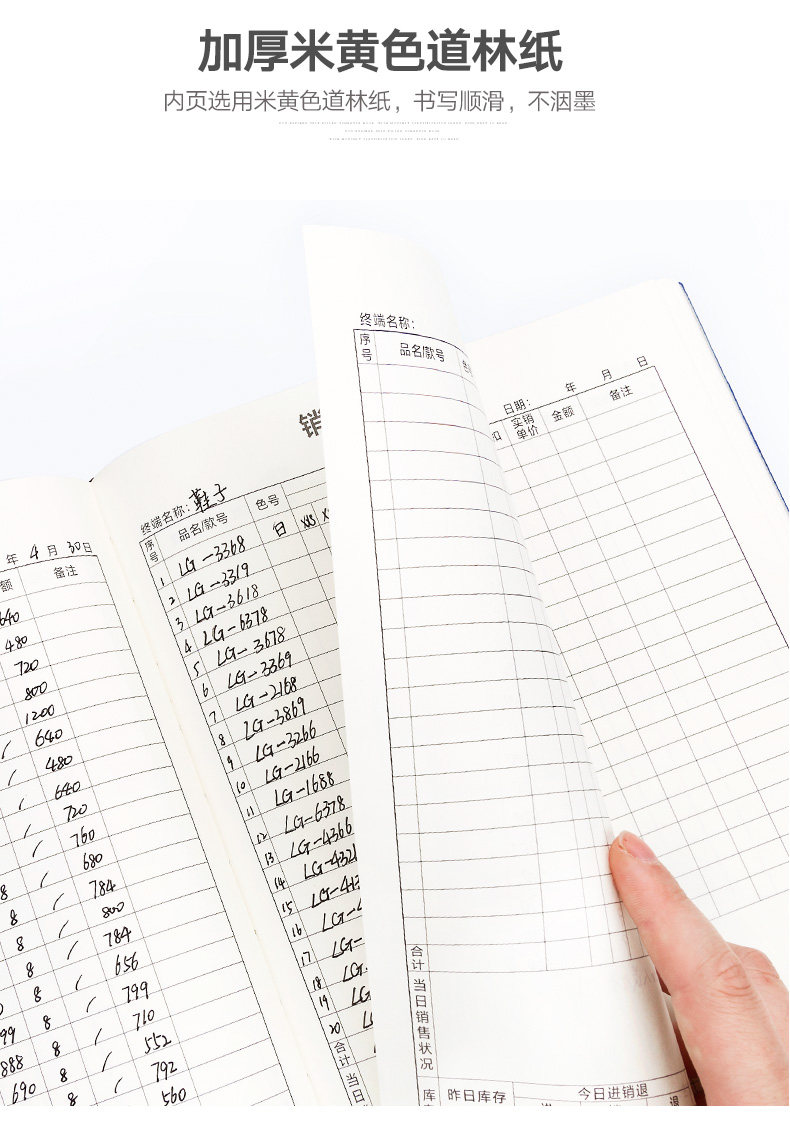 加厚米黄色道林纸
内页选用米黄色道林纸，书写顺滑，不洇墨
年 4 月 30 日
额 备注
640
480
720
800
1200
/ 640
/ 480
/ 640
/ 720
/ 760
8 / 680
8 / 784
8 / 800
8 / 784
8 / 656
8 / 799
99 8 / 710
888 8 / 552
690 8 / 792
8 560
销
终端名称：鞋子
序号 品名/款号 色号
白 XXS X
1 LG-3368
2 LG-3319
3 LG-3618
4 LG-6378
5 LG-3678
6 LG-3369
7 LG-2168
8 LG-3869
9 LG-3266
10 LG-2166
11 LG-1688
12 LG-6378
13 LG-4366
14 LG-4321
15 LG-413
16 LG-4
17 LG-
18 LG
19 LG
20 L
合计
当日
终端名称：
序号 品名/款号 色
合计
当日销售状况
库 昨日库存 今日进销退
进 退
日期： 年 月 日
扣 实销单价 金额 备注